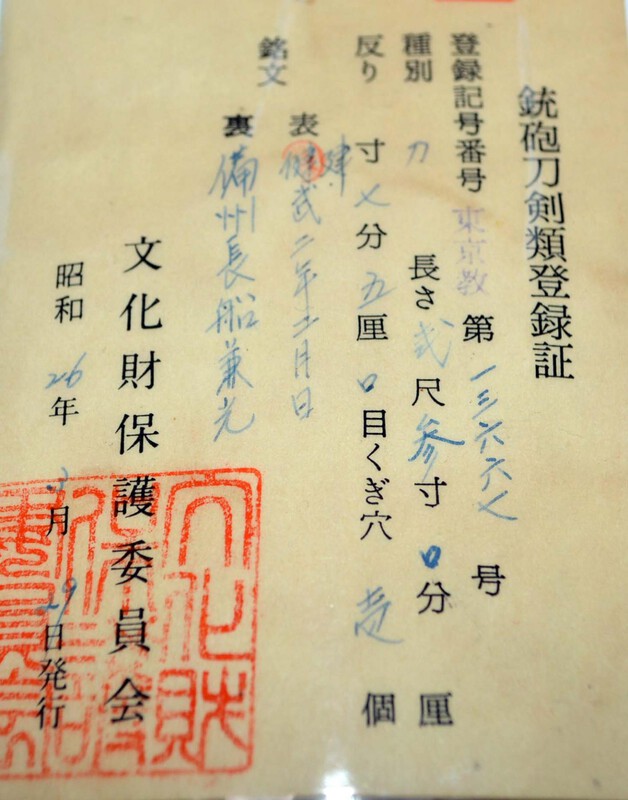 銃砲刀剣類登録証
登録記号番号 東京教 第一三六六七号
種別 刀 長さ弐尺参寸0分 厘
反り 寸七分五厘 目くぎ穴 壱個
銘文 表 健建武二年 月日
裏 備州長船兼光
文化財保護委員会
昭和26年3月29日発行